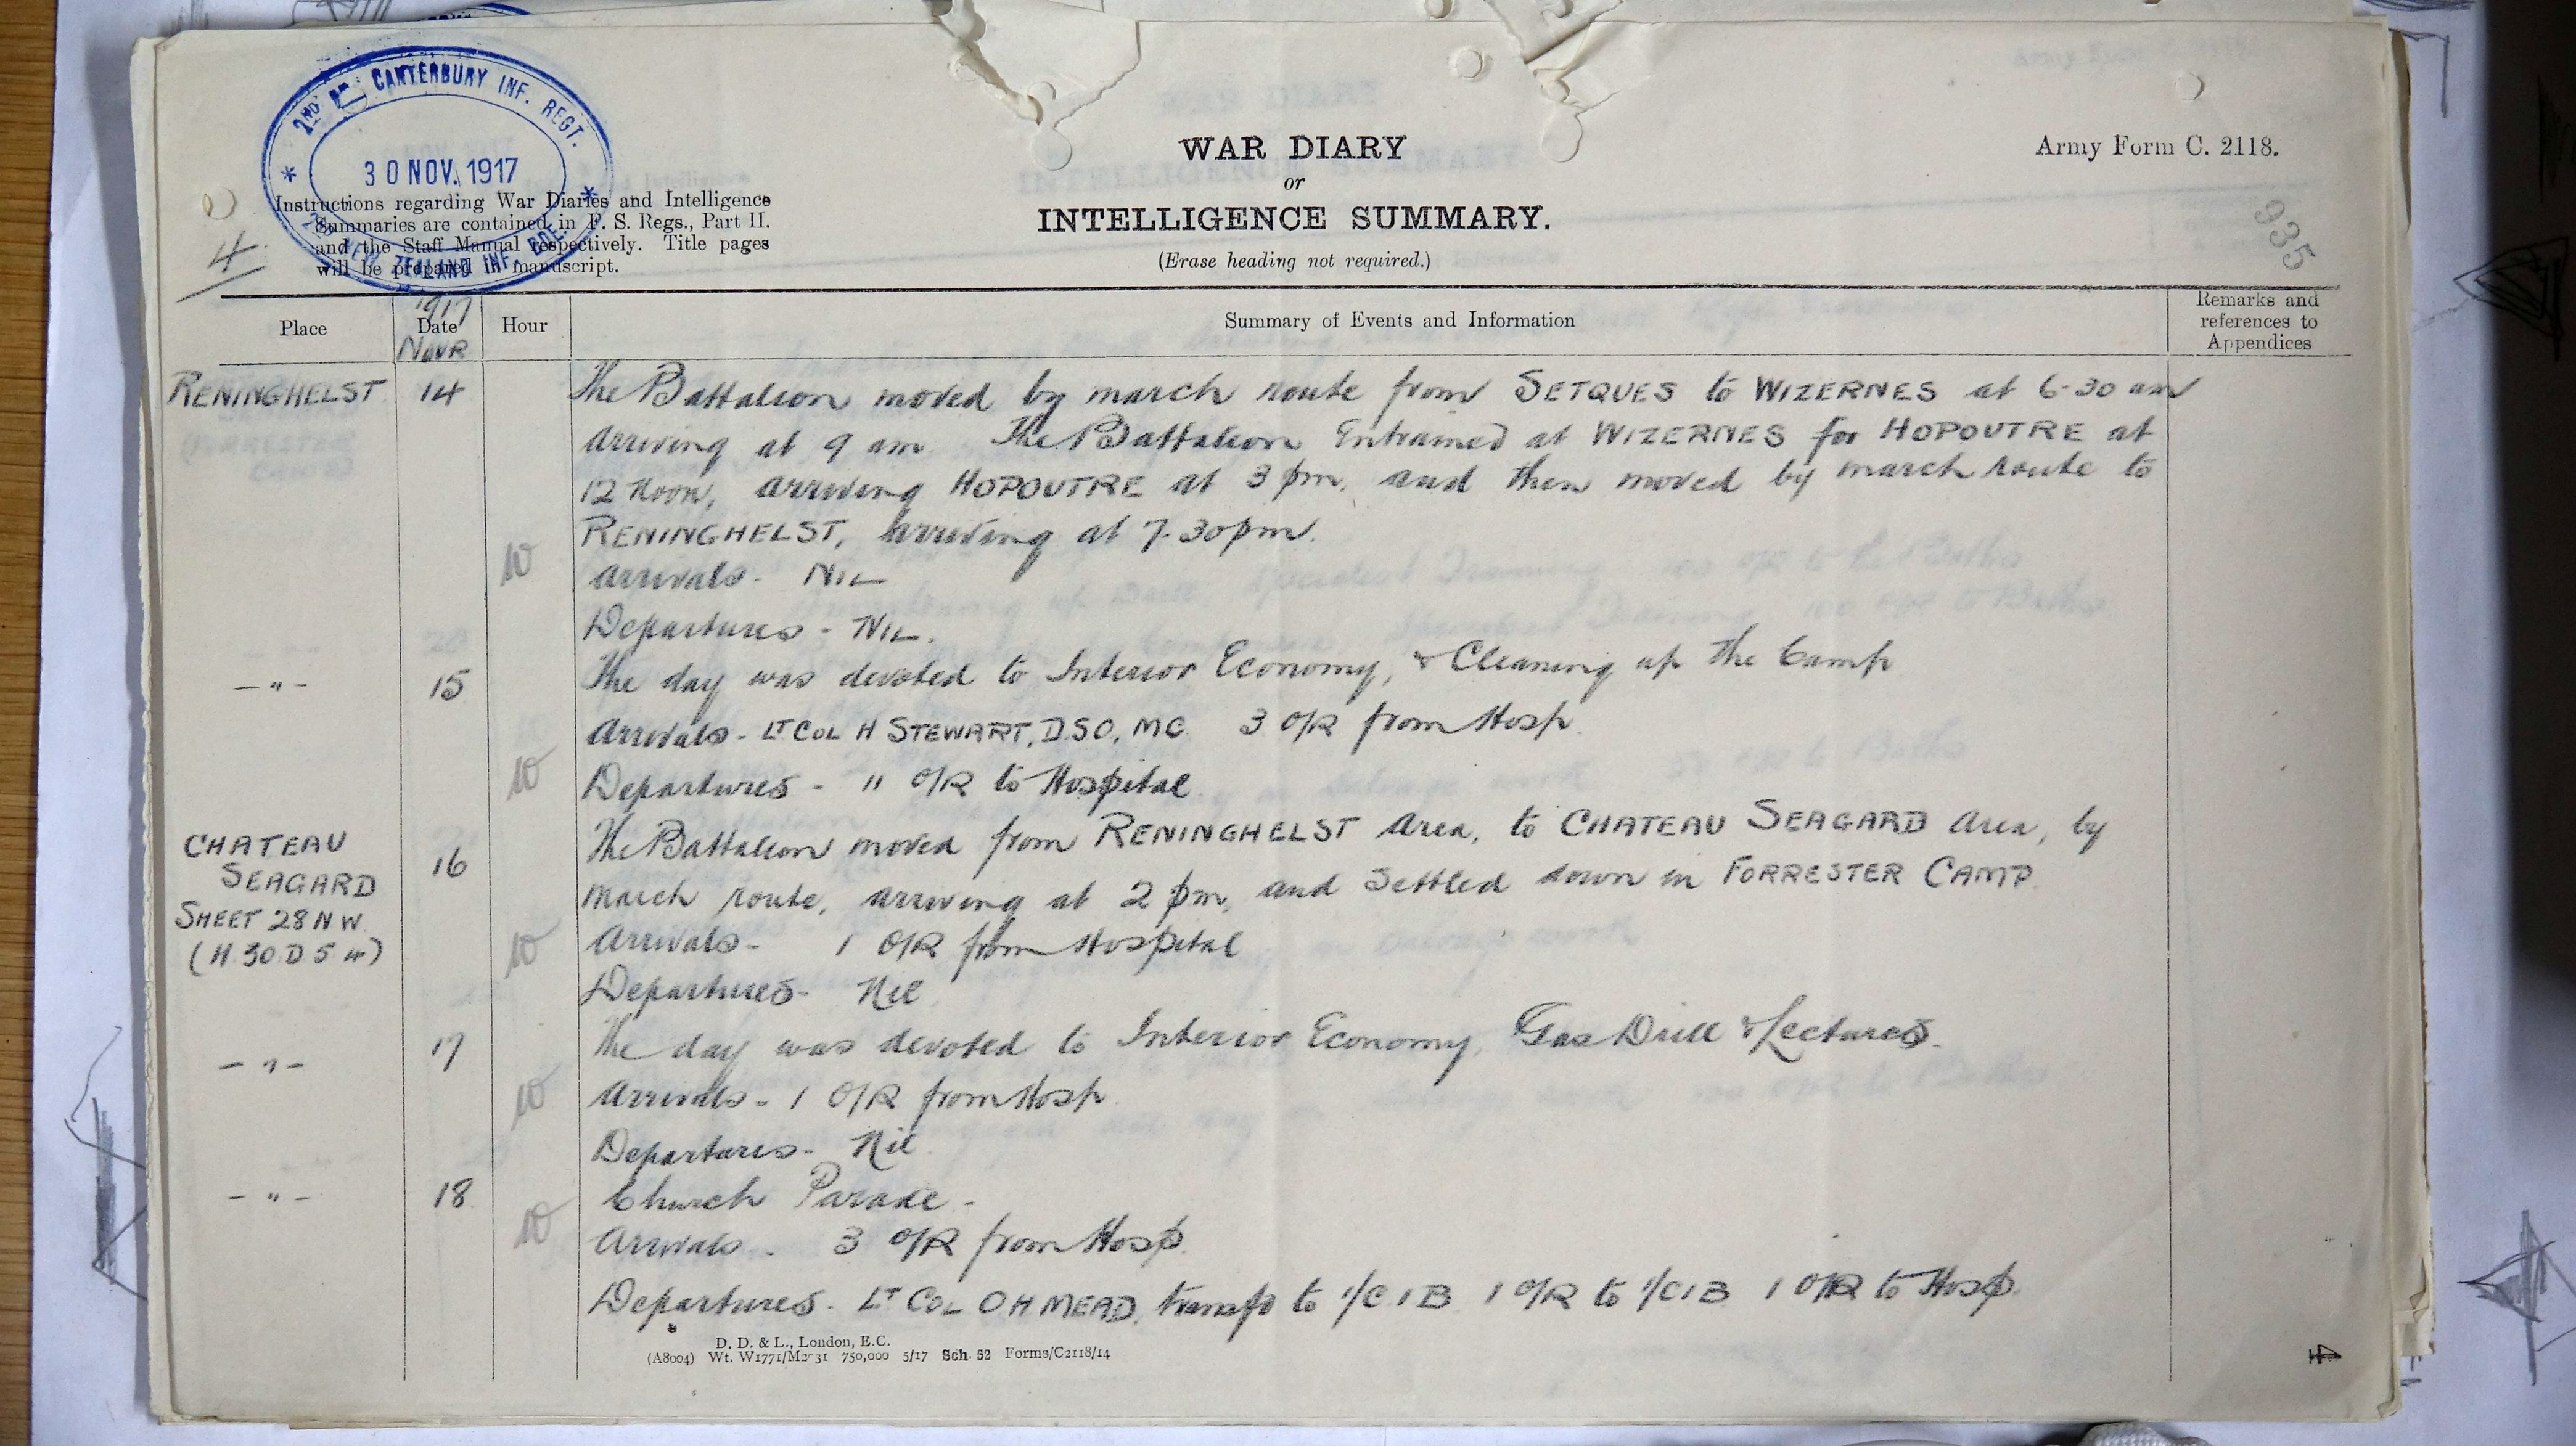 2ND BN CANTERBURY INF. REGT.
30 NOV. 1917
2ND NEW ZEALAND INF. BDE.
WAR DIARY
or
INTELLIGENCE SUMMARY.
(Erase heading not required.)
Army Form C. 2118.
935
Instructions regarding War Diaries and Intelligence
Summaries are contained in F. S. Regs., Part II.
and the Staff Manual respectively. Title pages
will be prepared in manuscript.
4
Place
1917
Date
Novr
Hour
Summary of Events and Information
Remarks and
references to
Appendices
RENINGHELST 14 The Battalion moved by march route from SETQUES to WIZERNES at 6-30 am
arriving at 9 am The Battalion Entrained at WIZERNES for HOPOUTRE at
12 Noon, arriving HOPOUTRE at 3 pm, and then moved by march route to
RENINGHELST, arriving at 7.30 pm.
Arrivals - NIL
Departures - NIL.
— " — 15 The day was devoted to Interior Economy, & Cleaning up the Camp
Arrivals - LT COL H STEWART, D.S.O, MC. 3 O/R from Hosp.
Departures - 11 O/R to Hospital
CHATEAU
SEAGARD
SHEET 28 N W
(H 30 D 5 4)
16 The Battalion moved from RENINGHELST Area, to CHATEAU SEAGARD Area, by
march route, arriving at 2 pm, and Settled down in FORRESTER CAMP.
Arrivals - 1 O/R from Hospital
Departures - Nil
— " — 17 The day was devoted to Interior Economy, Gas Drill & Lectures.
Arrivals - 1 O/R from Hosp
Departures - Nil
— " — 18 Church Parade -
Arrivals - 3 O/R from Hosp.
Departures - LT COL O H MEAD, transfd to 1/C I B 1 O/R to 1/C I B 1 O/R to Hosp.
D. D. & L., London, E.C.
(A8004) Wt. W1771/M2031 750,000 5/17 Sch. 52 Forms/C2118/14
4